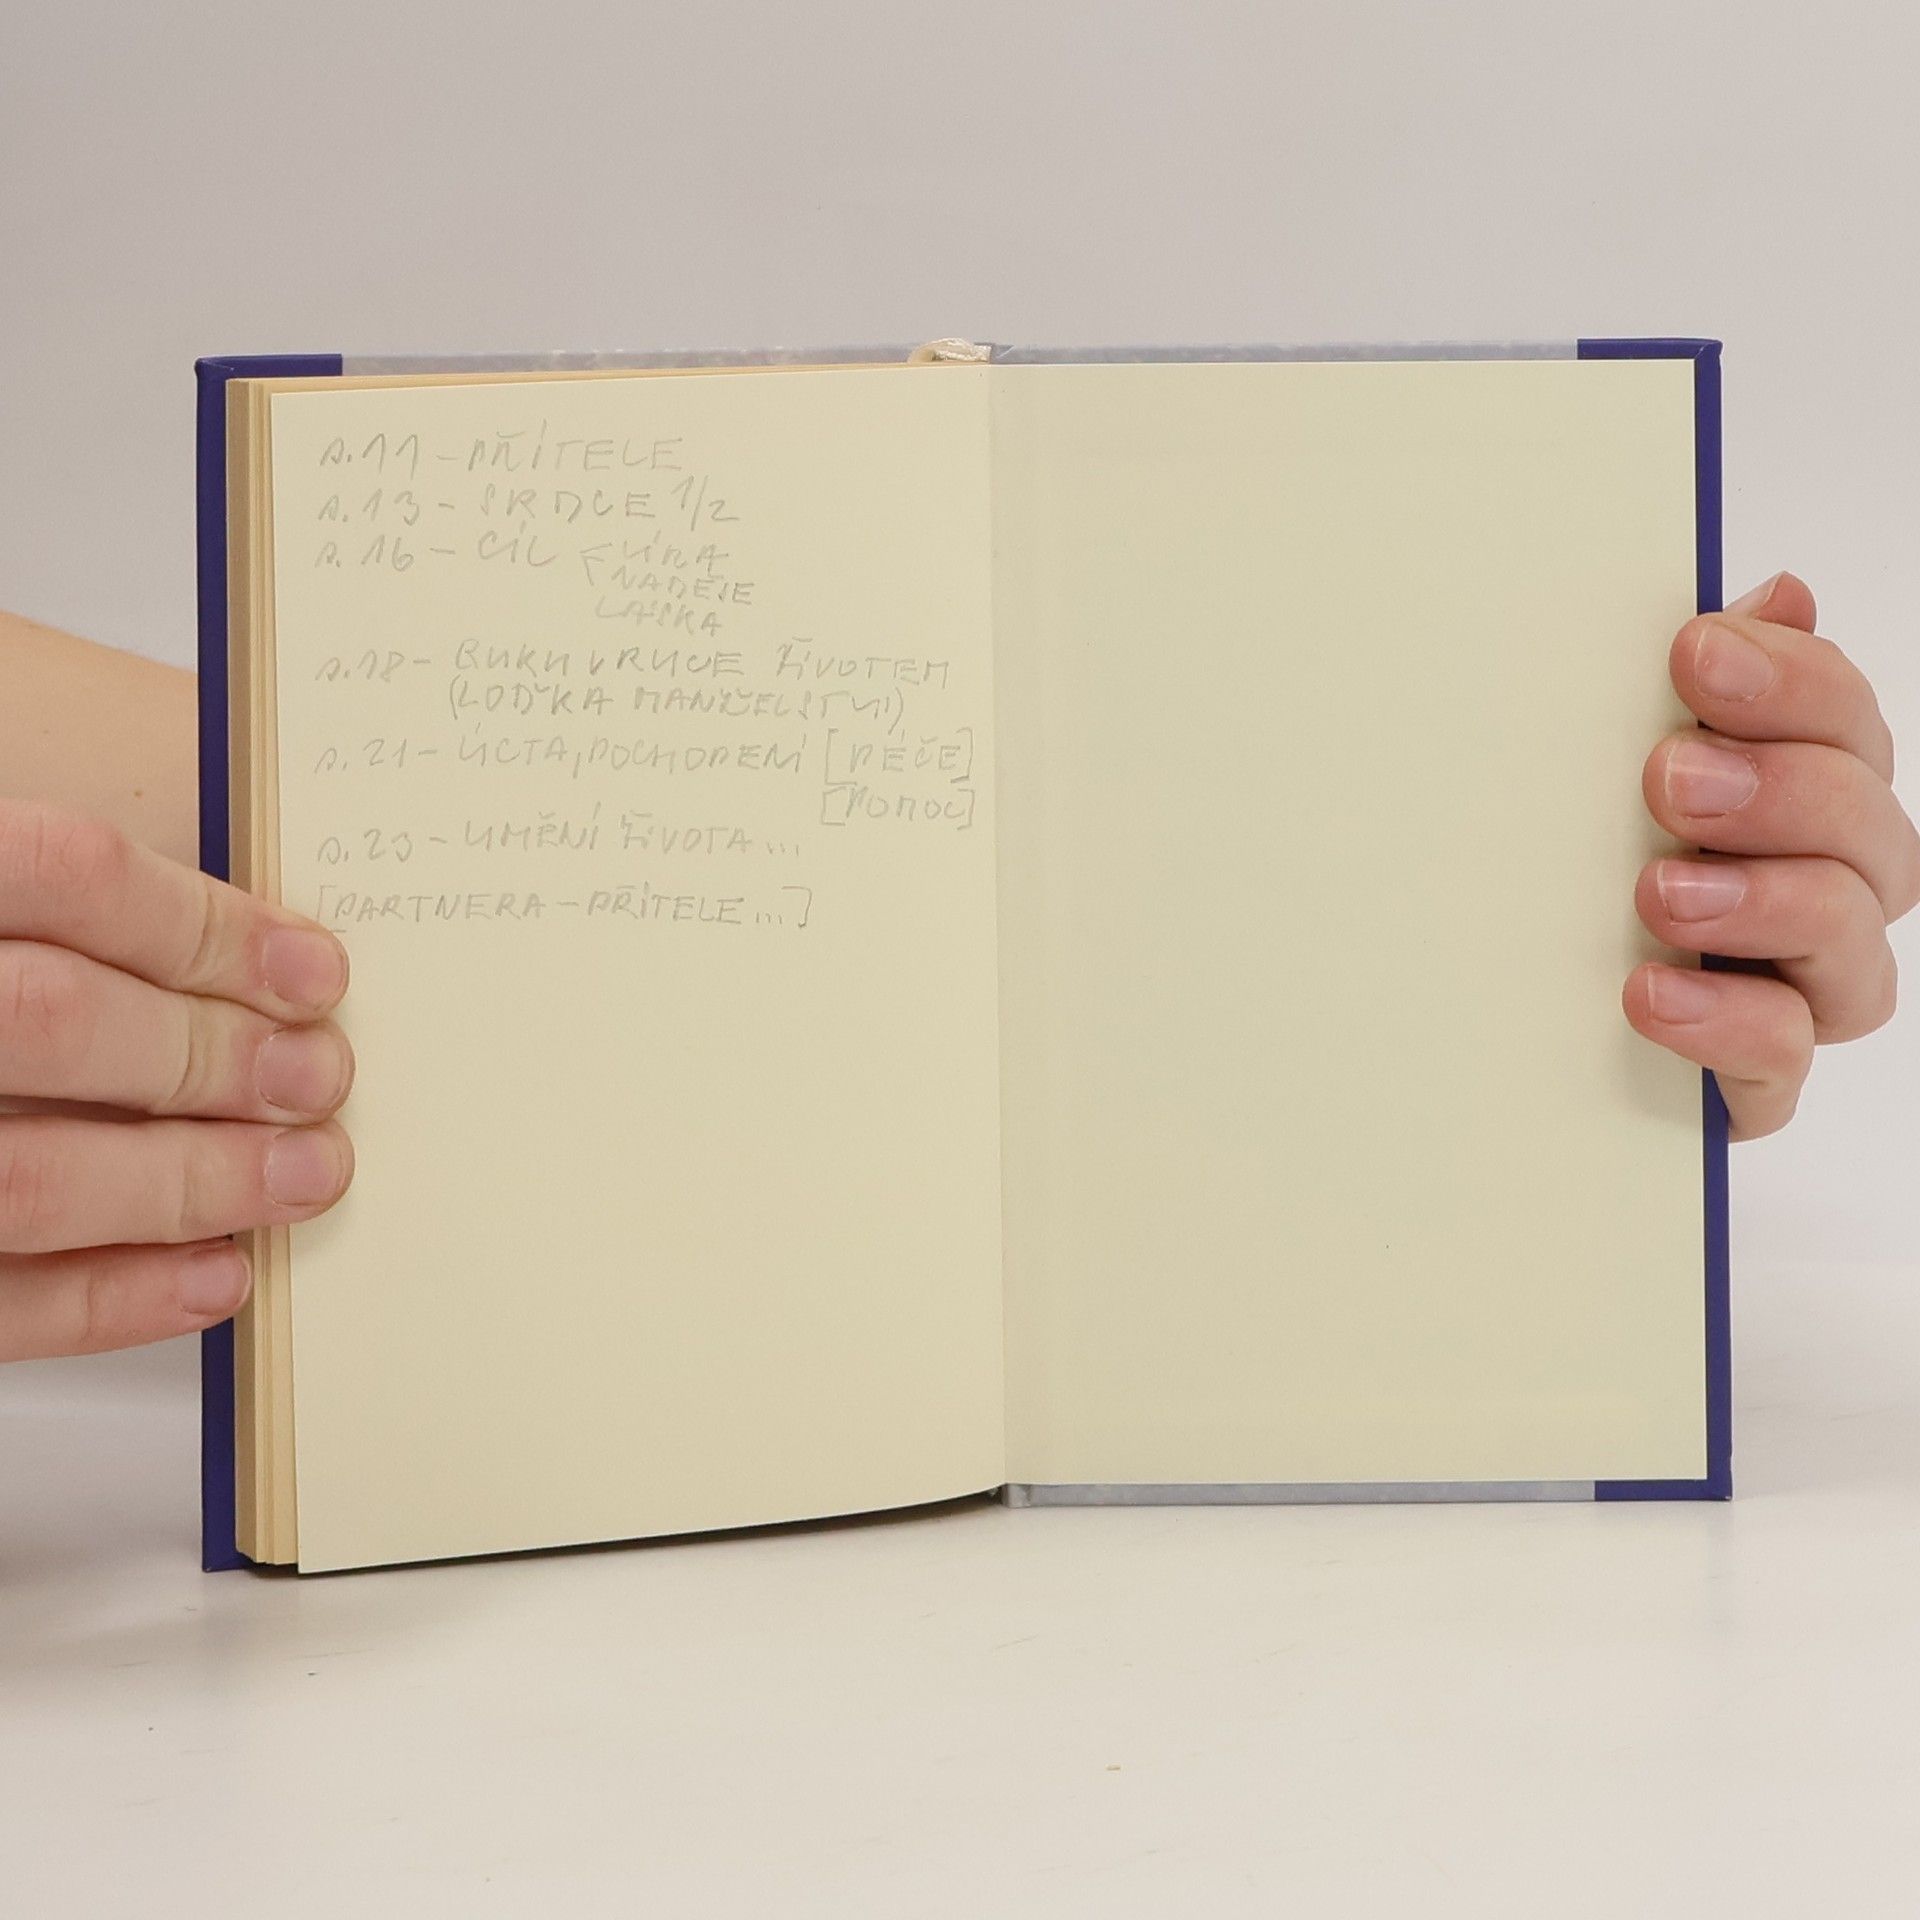 s. 11 - PŘÍTELE
s. 13 - SRDCE 1/2
s. 16 - CÍL - VÍRA
NADĚJE
LÁSKA
s. 18 - RUKU V RUCE ŽIVOTEM
(LOĎKA MANŽELSTVÍ)
s. 21 - ÚCTA, POCHOPENÍ [PÉČE]
[POMOC]
s. 23 - UMĚNÍ ŽIVOTA ...
[PARTNERA - PŘÍTELE ...]